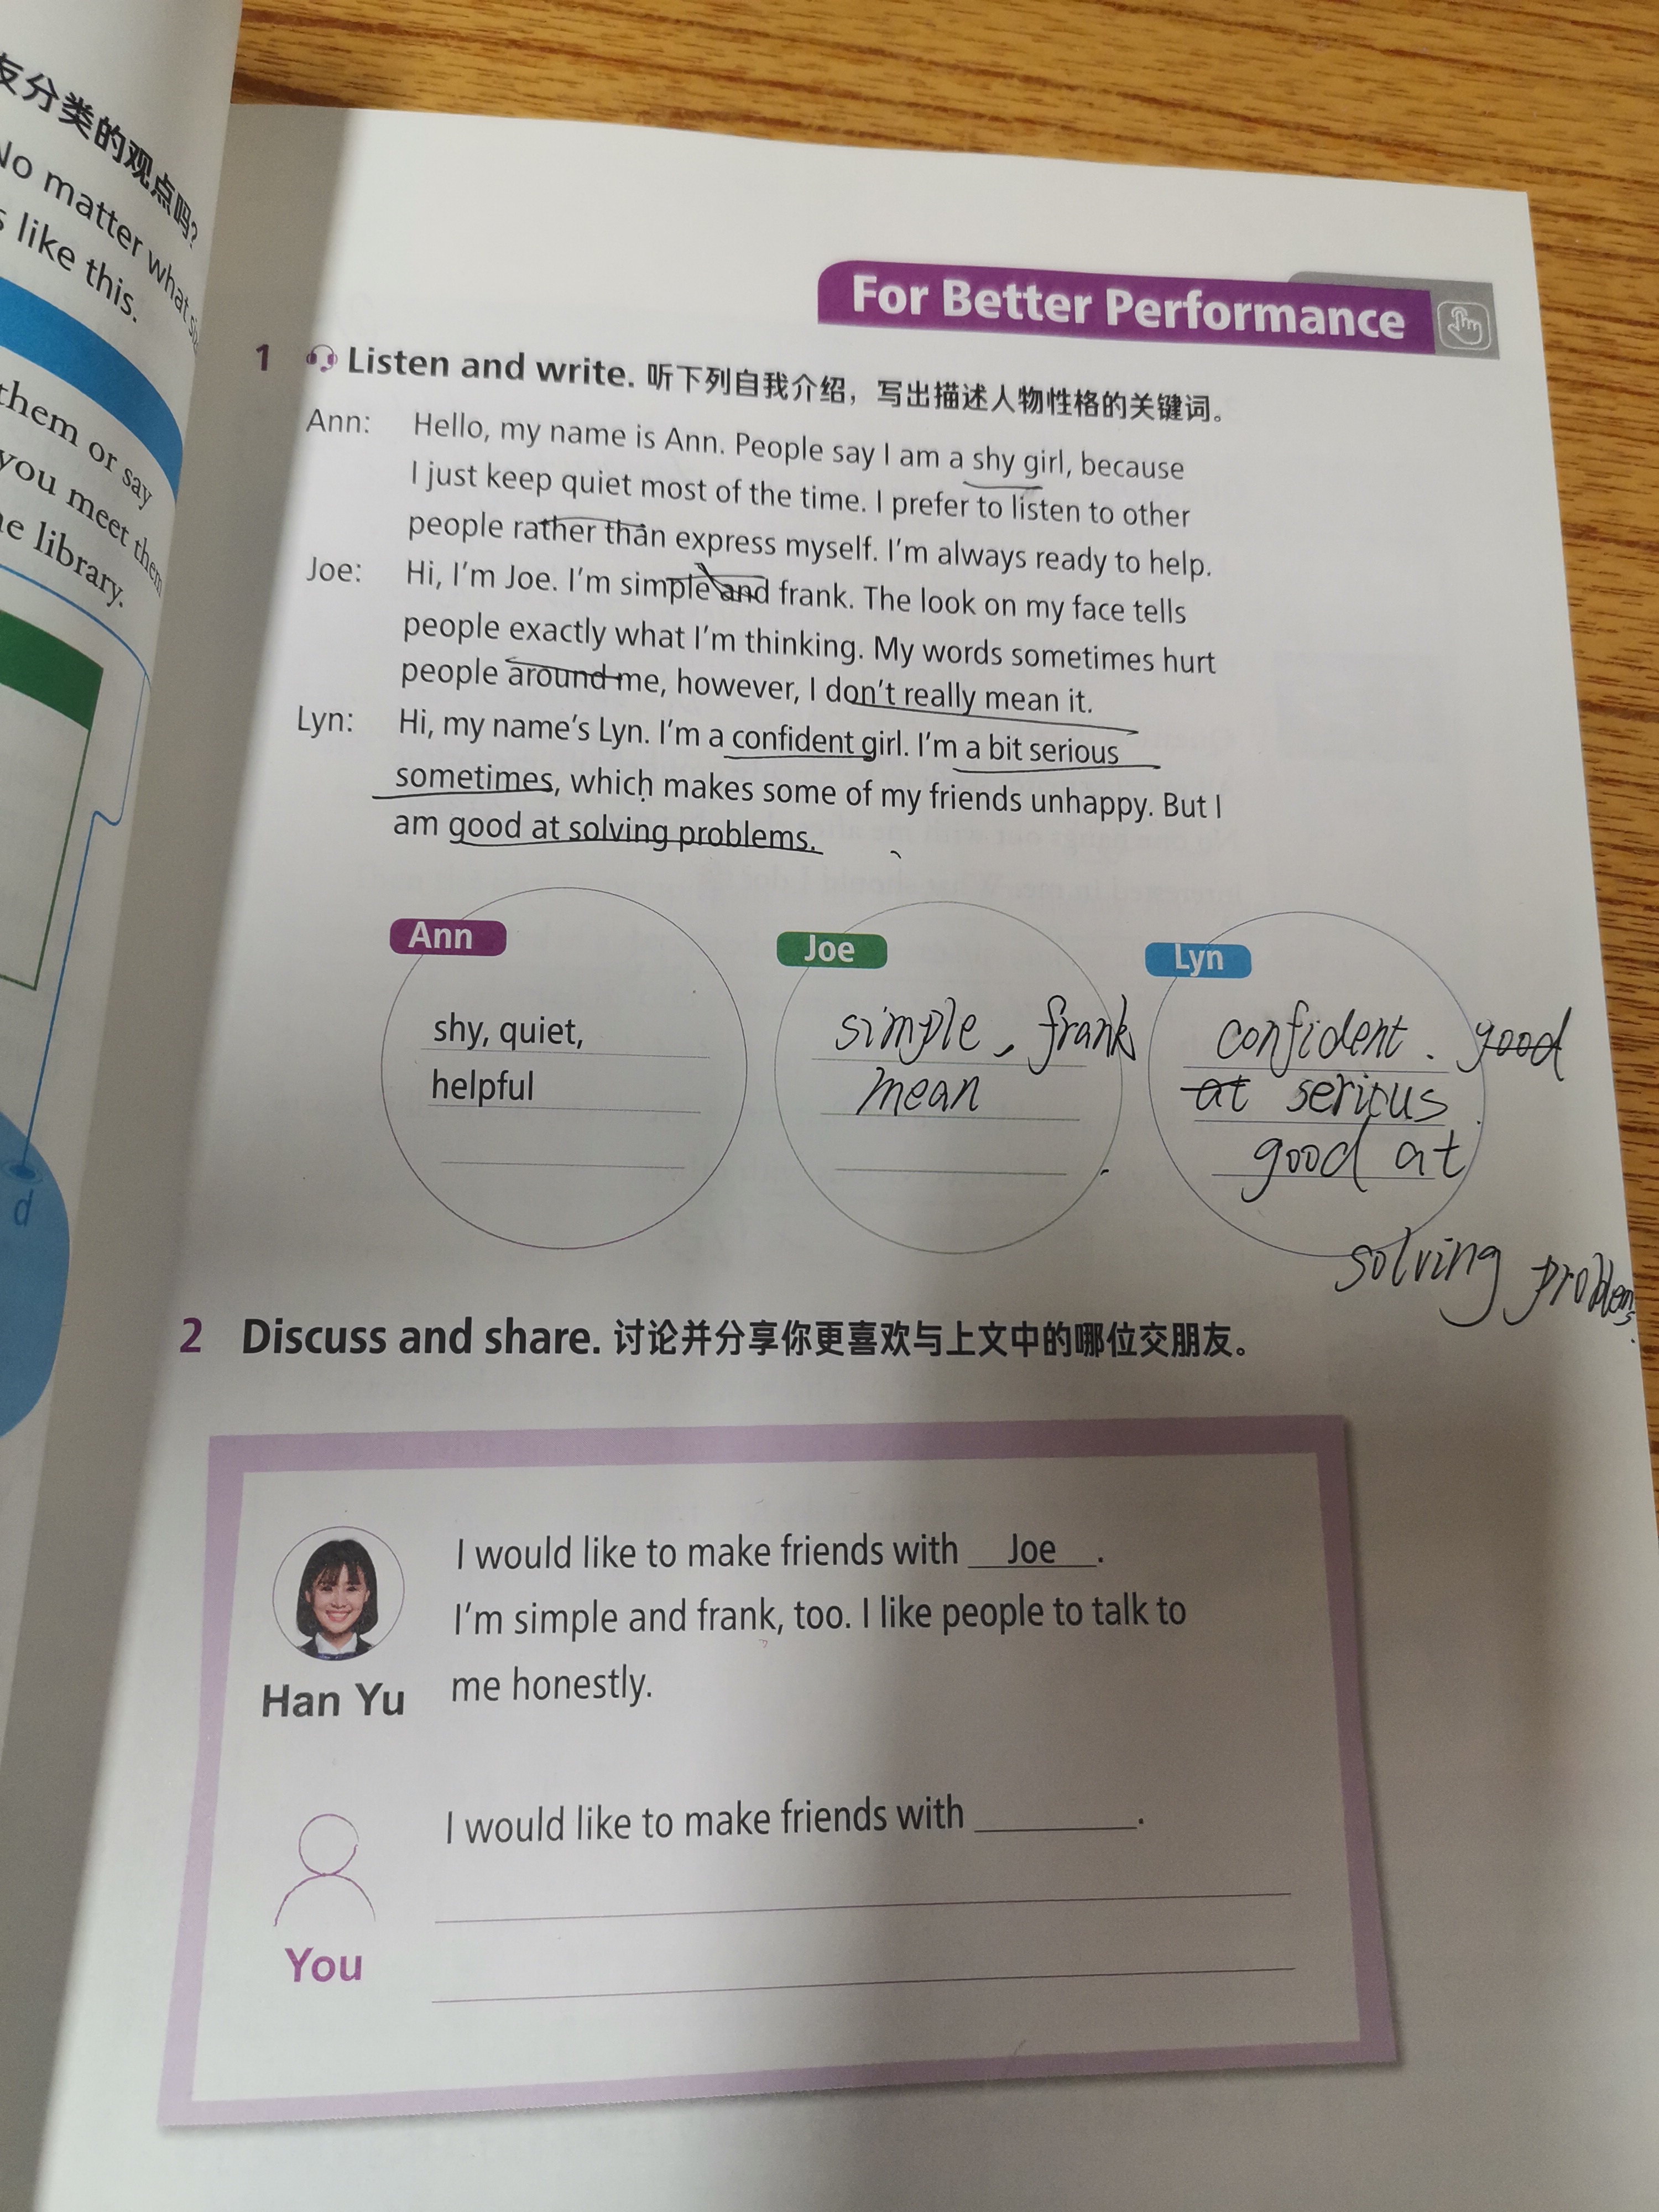 友分类的观点吗?
No matter what
like this.
them or say
you meet them
he library.
d
For Better Performance
1 Listen and write. 听下列自我介绍，写出描述人物性格的关键词。
Ann: Hello, my name is Ann. People say I am a shy girl, because
I just keep quiet most of the time. I prefer to listen to other
people rather than express myself. I'm always ready to help.
Joe: Hi, I'm Joe. I'm simple and frank. The look on my face tells
people exactly what I'm thinking. My words sometimes hurt
people around me, however, I don't really mean it.
Lyn: Hi, my name's Lyn. I'm a confident girl. I'm a bit serious
sometimes, which makes some of my friends unhappy. But I
am good at solving problems.
Ann
shy, quiet,
helpful
Joe
simple, frank
mean
Lyn
confident. good
at serious
good at
solving problems.
2 Discuss and share. 讨论并分享你更喜欢与上文中的哪位交朋友。
I would like to make friends with Joe.
I'm simple and frank, too. I like people to talk to
me honestly.
Han Yu
I would like to make friends with ________.
You